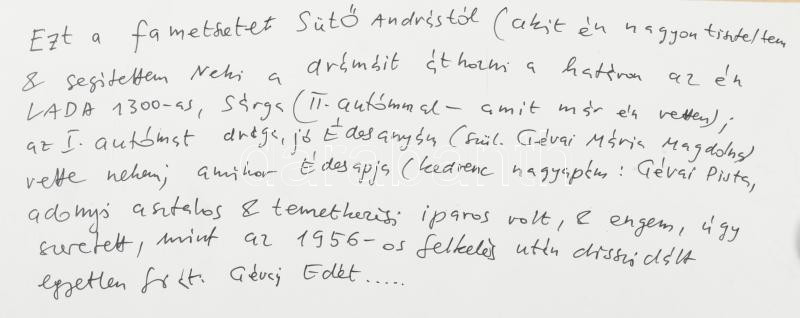 Ezt a fametszetet Sütő Andrástól (akit én nagyon tiszteltem
& segítettem Neki a drámáit áthozni a határon az én
LADA 1300-as, sárga (II. autómmal – amit már én vettem);
az I. autómat drága, jó Édesanyám (szül. Gévai Mária Magdolna)
vette nekem, amikor Édesapja (kedvenc nagyapám: Gévai Pista,
adonyi asztalos & temetkezési iparos volt, & engem, úgy
szeretett, mint az 1956-os felkelés után disszidált
egyetlen fiát. Gévai Edét.....
darabanth